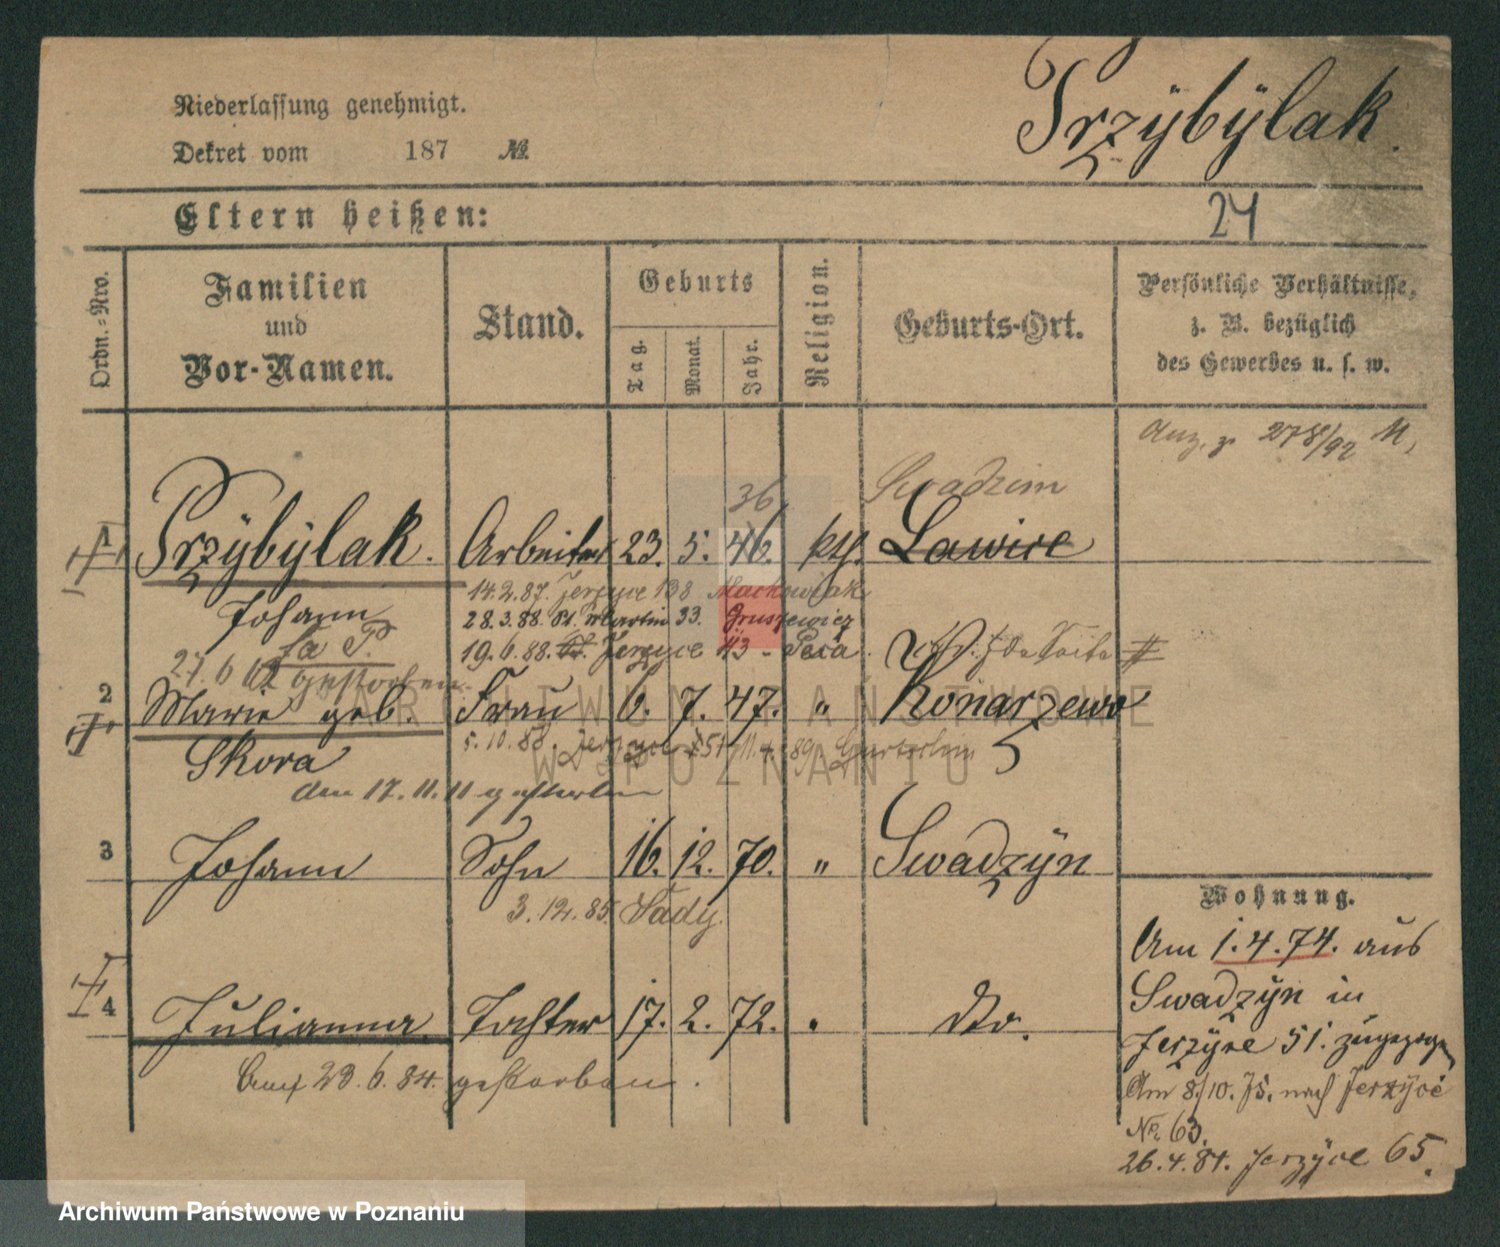 Niederlassung genehmigt.
Dekret vom 187 №
Przÿbÿlak.
Eltern heißen:
24
Ordn.-Nro.
Familien und Vor-Namen.
Stand.
Geburts
Tag.
Monat.
Jahr.
Religion.
Geburts-Ort.
Persönliche Verhältnisse, z. B. bezüglich des Gewerbes u. s. w.
278/92 M,
36, Swadzim
1 Przÿbÿlak. Arbeiter 23. 5. 46. kth. Lawice
14.2.87. Jerzyce 138 Mackowiak
Johann 28.3.88. St. Martin 33. Gruszewicz
19.6.88. Jerzyce 43
27.6 gestorben
2 Marie geb. Frau 6. 7. 47. " Konarzewo
5.10.88. Jerzyce 11.4.89 Gurtschin 5
Skora
den 17.11.11 gestorben
3 Johann Sohn 16. 12. 70. " Swadzÿn
3.12.85. Sady.
4 Julianna. Tochter 17. 2. 72. " Do.
Am 23.6.84. gestorben.
Wohnung.
Am 1.4.74. aus
Swadzÿn in
Jerzÿce 51. zugezogen
Am 8/10.75. nach Jerzÿce
No. 63.
26.4.81. Jerzÿce 65.
ARCHIWUM PAŃSTWOWE
W POZNANIU
Archiwum Państwowe w Poznaniu